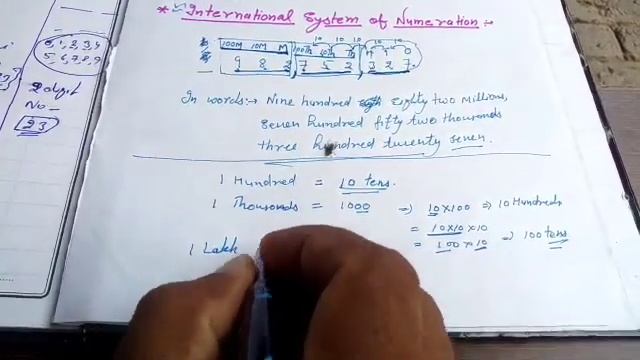 International System of Numeration :-
100M 10M M 100Th 10Th Th H T O
9 8 2 7 5 2 3 2 7
In words:→ Nine hundred Eighty two Millions,
seven hundred fifty two thousands
three hundred twenty seven.
1 Hundred = 10 tens.
1 Thousands = 1000 ⇒ 10×100 ⇒ 10 Hundreds
= 10×10×10
= 100×10 ⇒ 100 tens
1 Lakh
0, 1, 2, 3, 4
5, 6, 7, 8, 9
2 digit
No—
23